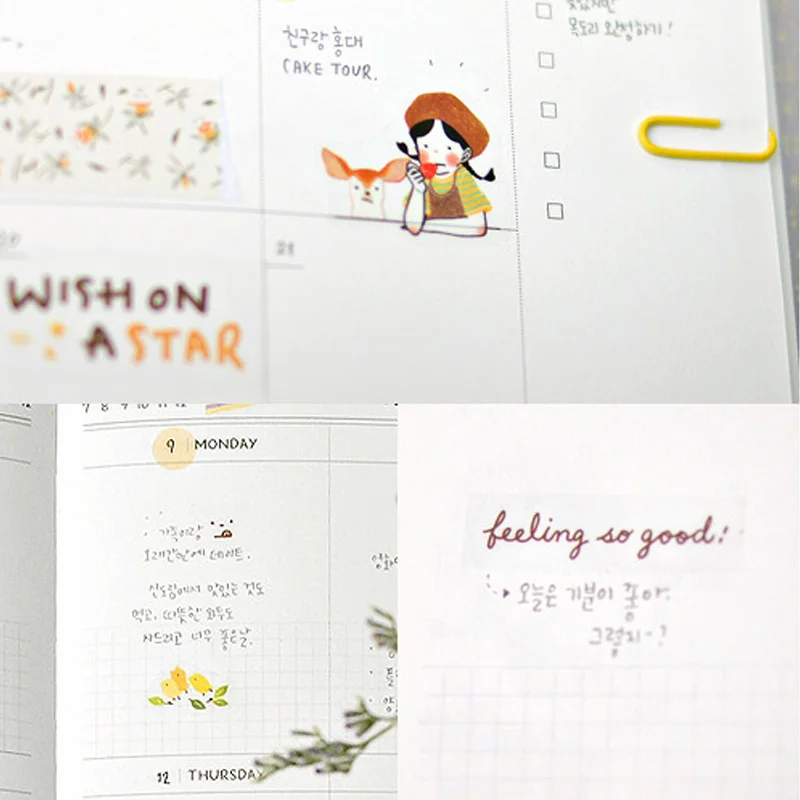 친구랑 홍대
CAKE TOUR.
목도리 완성하기!
21
WISH ON
A STAR
7 8 9 10 11 12
9 MONDAY
가족이랑
오래간만에 데이트.
신도림에서 맛있는 것도
먹고, 따뜻한 외투도
사드리고 너무 좋은날.
12 THURSDAY
feeling so good!
오늘은 기분이 좋아.
그렇지~?